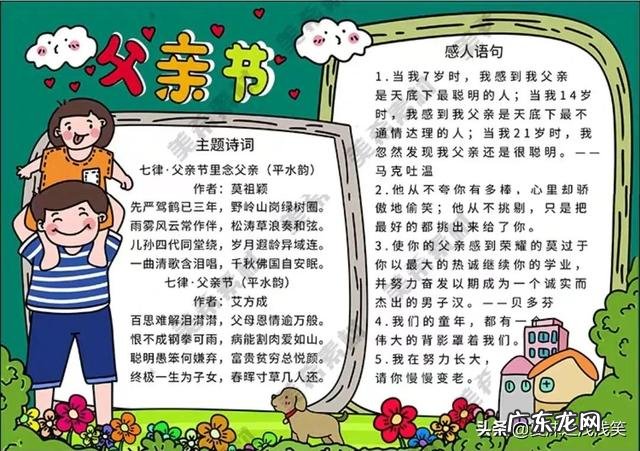 父亲节
主题诗词
七律·父亲节里念父亲（平水韵）
作者：莫祖颖
先严驾鹤已三年，野岭山岗绿树圈。
雨雾风云常作伴，松涛草浪奏和弦。
儿孙四代同堂绕，岁月遐龄异域连。
一曲清歌含泪唱，千秋佛国自安眠。
七律·父亲节（平水韵）
作者：艾方成
百思难解泪潸潸，父母恩情逾万般。
恨不成钢拳可雨，病能割肉爱如山。
聪明愚笨何嫌弃，富贵贫穷总悦颜。
终极一生为子女，春晖寸草几人还。
感人语句
1.当我7岁时，我感到我父亲
是天底下最聪明的人；当我14岁
时，我感到我父亲是天底下最不
通情达理的人；当我21岁时，我
忽然发现我父亲还是很聪明。——
马克吐温
2.他从不夸你有多棒，心里却骄
傲地偷笑；他从不挑剔，只是把
最好的都挑出来给了你。
3.使你的父亲感到荣耀的莫过于
你以最大的热诚继续你的学业，
并努力奋发以期成为一个诚实而
杰出的男子汉。——贝多芬
4.我们的童年，都有一个
伟大的背影罩着我们。
5.我在努力长大，
请你慢慢变老。
头条
广东龙网